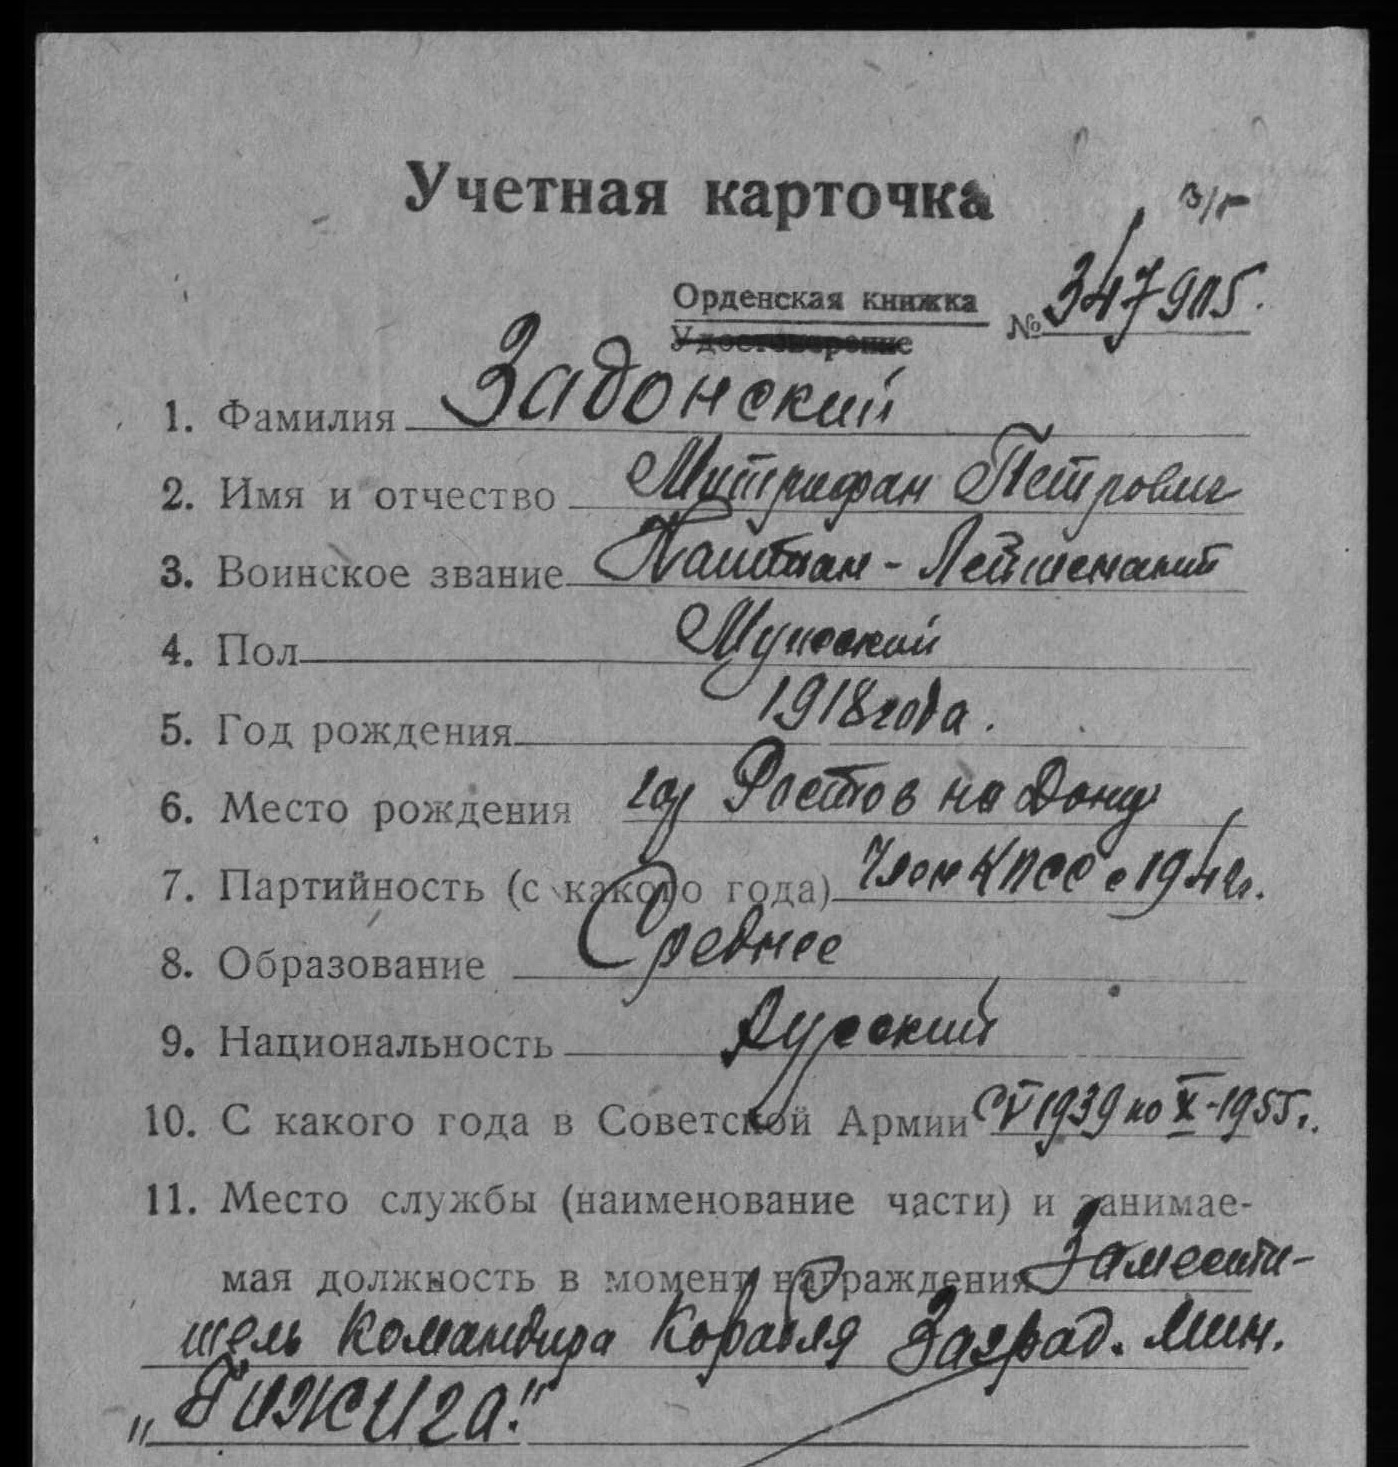 Учетная карточка
Орденская книжка № 347905.
Удостоверение
1. Фамилия Задонский
2. Имя и отчество Митрофан Петрович
3. Воинское звание Капитан-Лейтенант
4. Пол Мужской
5. Год рождения 1918 года.
6. Место рождения гор Ростов на Дону
7. Партийность (с какого года) Член КПСС с 194 г.
8. Образование Среднее
9. Национальность Русский
10. С какого года в Советской Армии С V 1939 по X-1955 г.
11. Место службы (наименование части) и занимае-
мая должность в момент награждения Замести-
тель командира Корабля Заград. мин.
„Гижига."